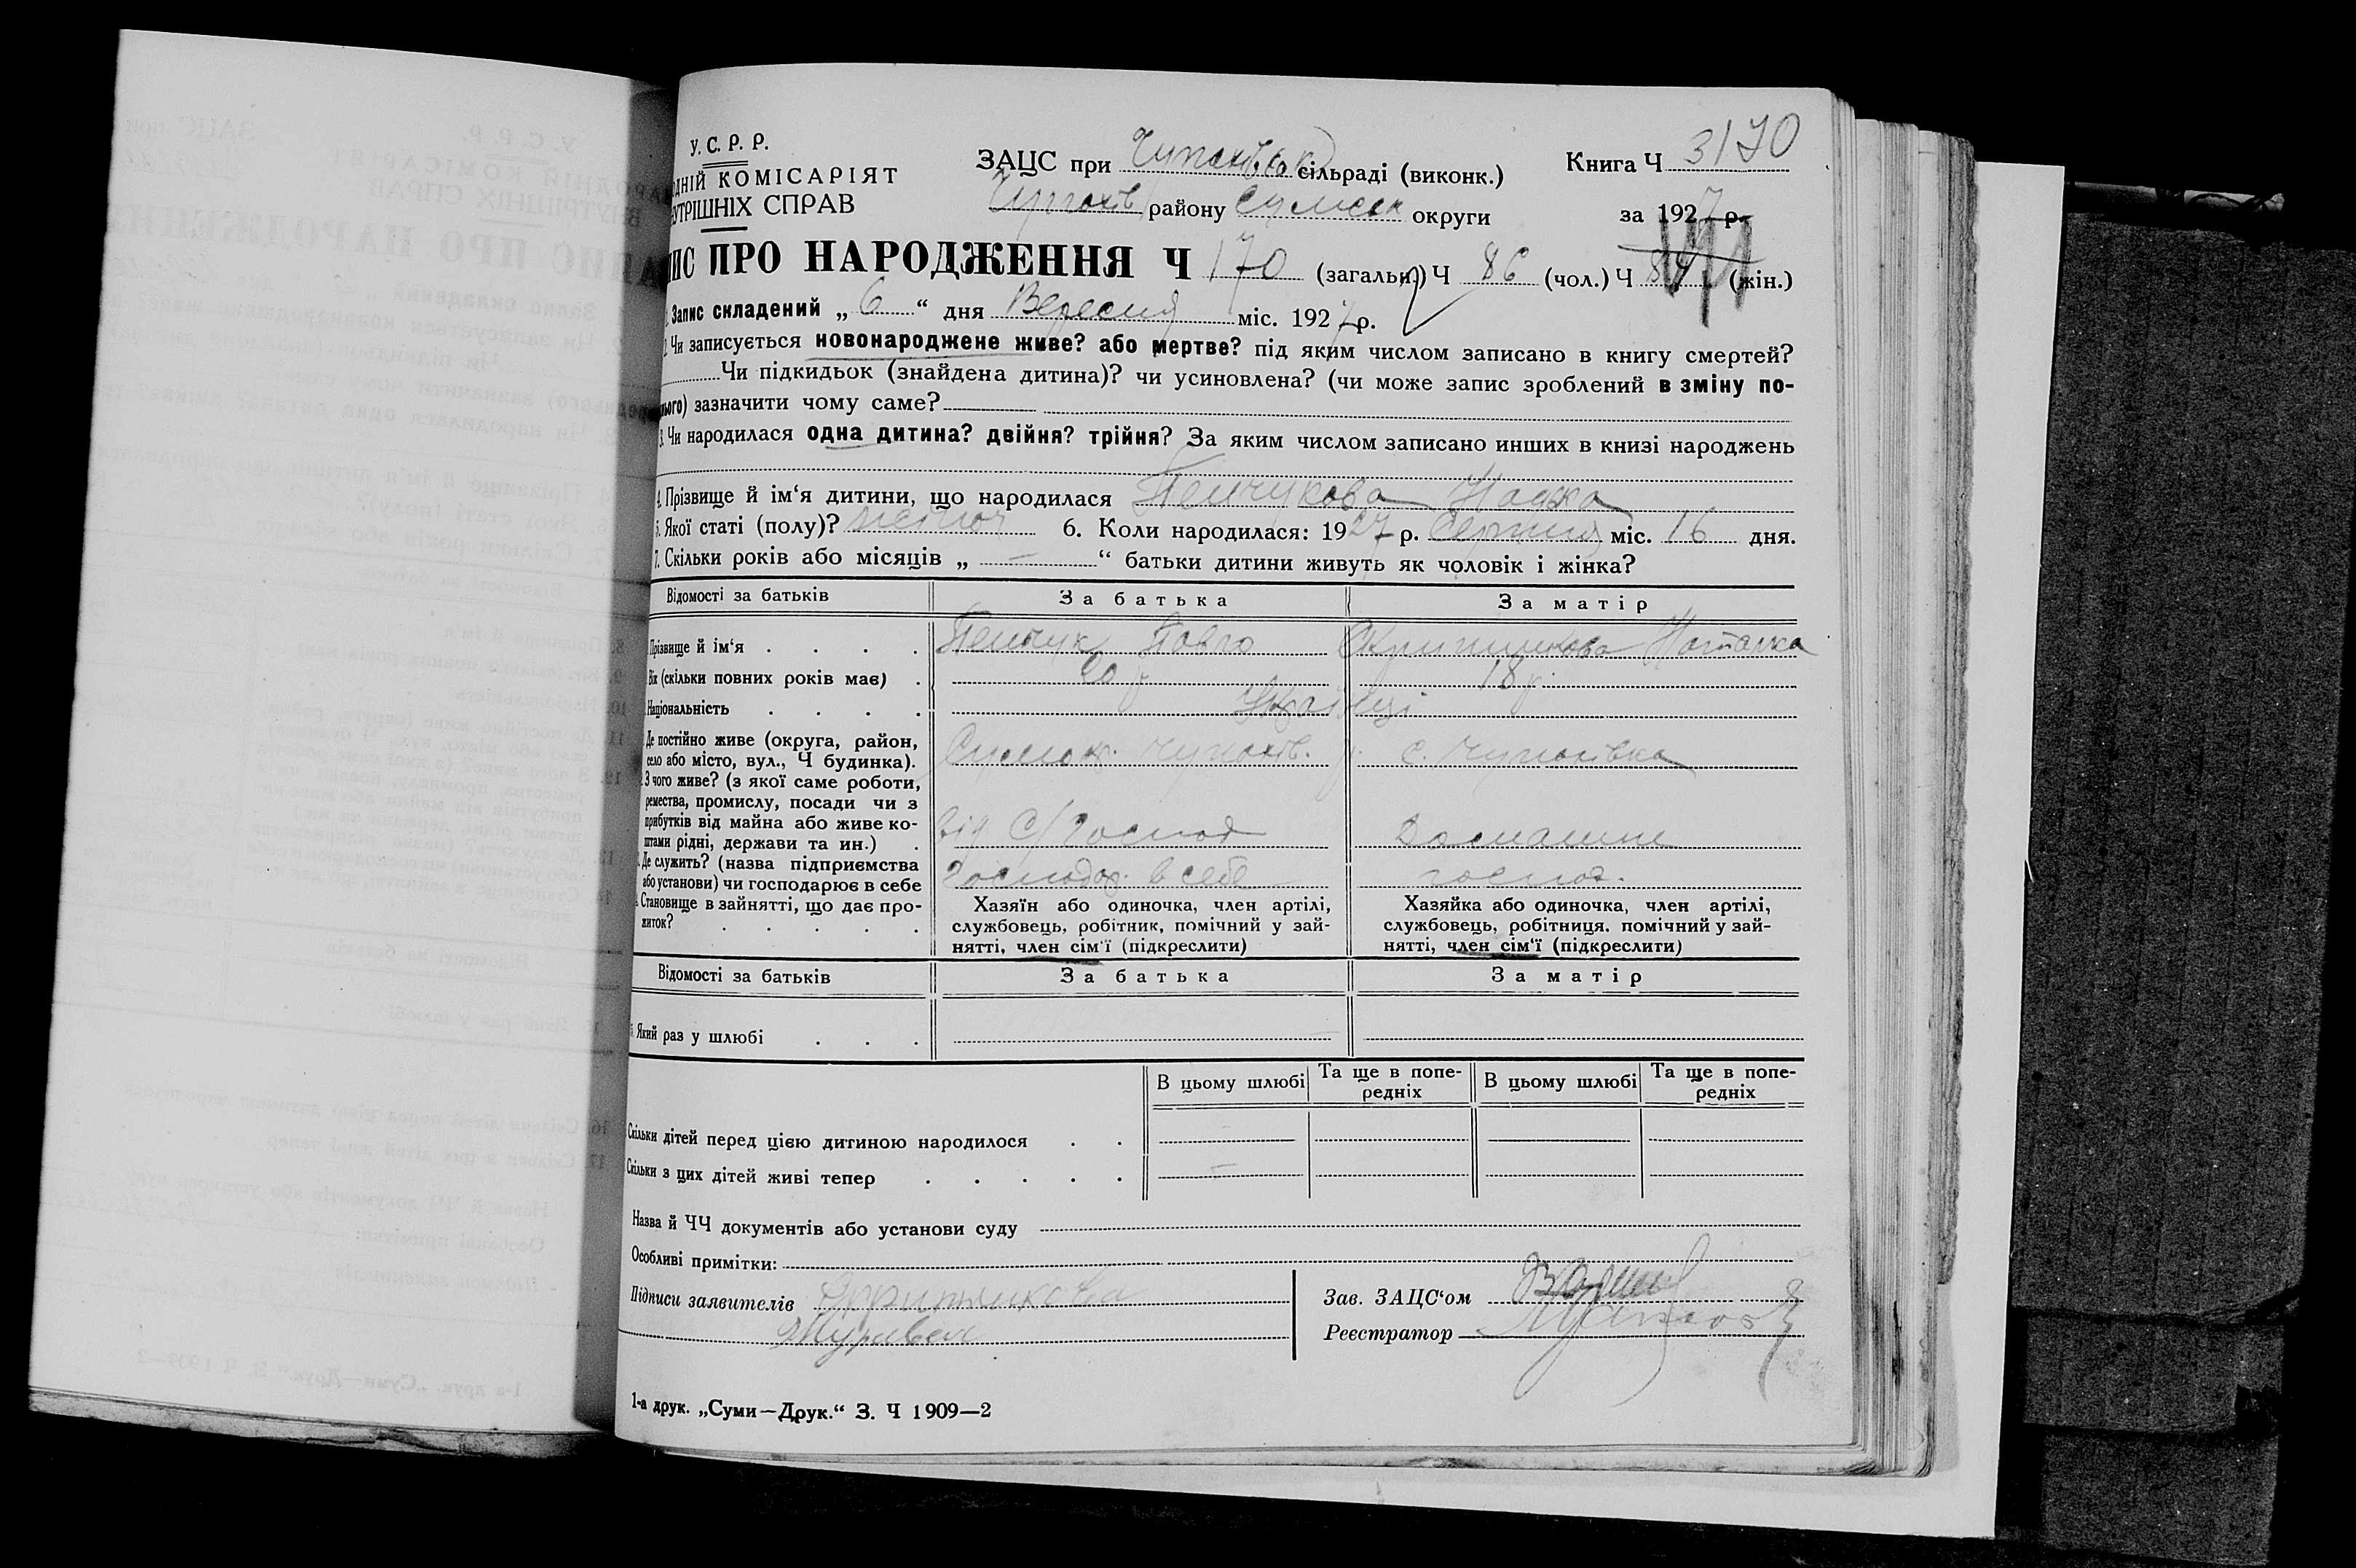 У. С. Р. Р.
ДНІЙ КОМІСАРІЯТ
УТРІШНІХ СПРАВ
ЗАЦС при Чупахівськ сільраді (виконк.)
Чупахів району Сумськ округи
Книга Ч 3/170
за 1927 р.
ИС ПРО НАРОДЖЕННЯ Ч 170 (загальн.) Ч 86 (чол.) Ч 84 (жін.)
Запис складений „ 6 “ дня Вересня міс. 1927 р.
2. Чи записується новонароджене живе? або мертве? під яким числом записано в книгу смертей?
Чи підкидьок (знайдена дитина)? чи усиновлена? (чи може запис зроблений в зміну по-
нього) зазначити чому саме?
3. Чи народилася одна дитина? двійня? трійня? За яким числом записано инших в книзі народжень
4. Прізвище й ім‘я дитини, що народилася Пенчукова
5. Якої статі (полу)? жіноч 6. Коли народилася: 1927 р. Серпня міс. 16 дня.
7. Скільки років або місяців „ — “ батьки дитини живуть як чоловік і жінка?
Відомості за батьків За батька За матір
Прізвище й ім‘я . . . . Пенчук Павло Наталка
Вік (скільки повних років має) . 20 р 18 р.
Національність . . . . Українці
Де постійно живе (округа, район, село або місто, вул., Ч будинка). Сумськ. Чупахів. р. с. Чупахівка
З чого живе? (з якої саме роботи,
ремества, промислу, посади чи з
прибутків від майна або живе ко-
штами рідні, держави та ин.) . від С/Господ Домашнє
Де служить? (назва підприємства
або установи) чи господарює в себе Господар. в себе господ.
Становище в зайнятті, що дає про-
житок? . . . . .
Хазяїн або одиночка, член артілі,
службовець, робітник, помічний у зай-
нятті, член сім‘ї (підкреслити)
Хазяйка або одиночка, член артілі,
службовець, робітниця, помічний у зай-
нятті, член сім‘ї (підкреслити)
Відомості за батьків За батька За матір
Який раз у шлюбі . . . —
В цьому шлюбі Та ще в попе-
редніх В цьому шлюбі Та ще в попе-
редніх
Скільки дітей перед цією дитиною народилося . . -
Скільки з цих дітей живі тепер . . . . . —
Назва й ЧЧ документів або установи суду
Особливі примітки:
Підписи заявителів
Зав. ЗАЦС‘ом
Реєстратор
1-а друк. „Суми—Друк.“ З. Ч 1909—2